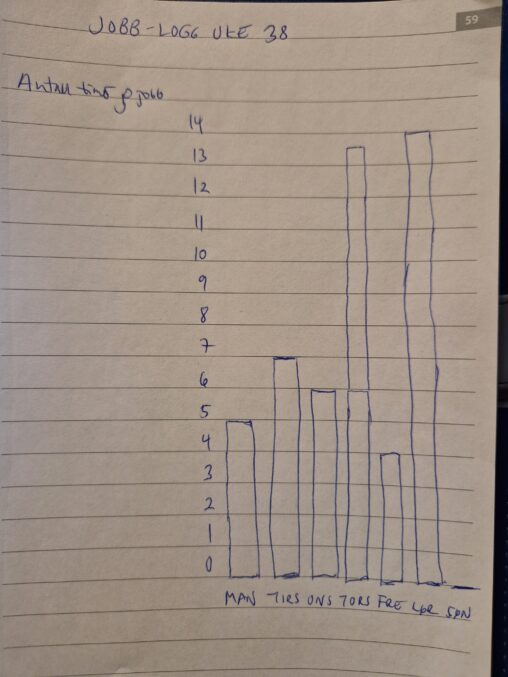 59
JOBB-LOGG UKE 38
Antall timer på jobb
14
13
12
11
10
9
8
7
6
5
4
3
2
1
0
MAN TIRS ONS TORS FRE LØR SØN